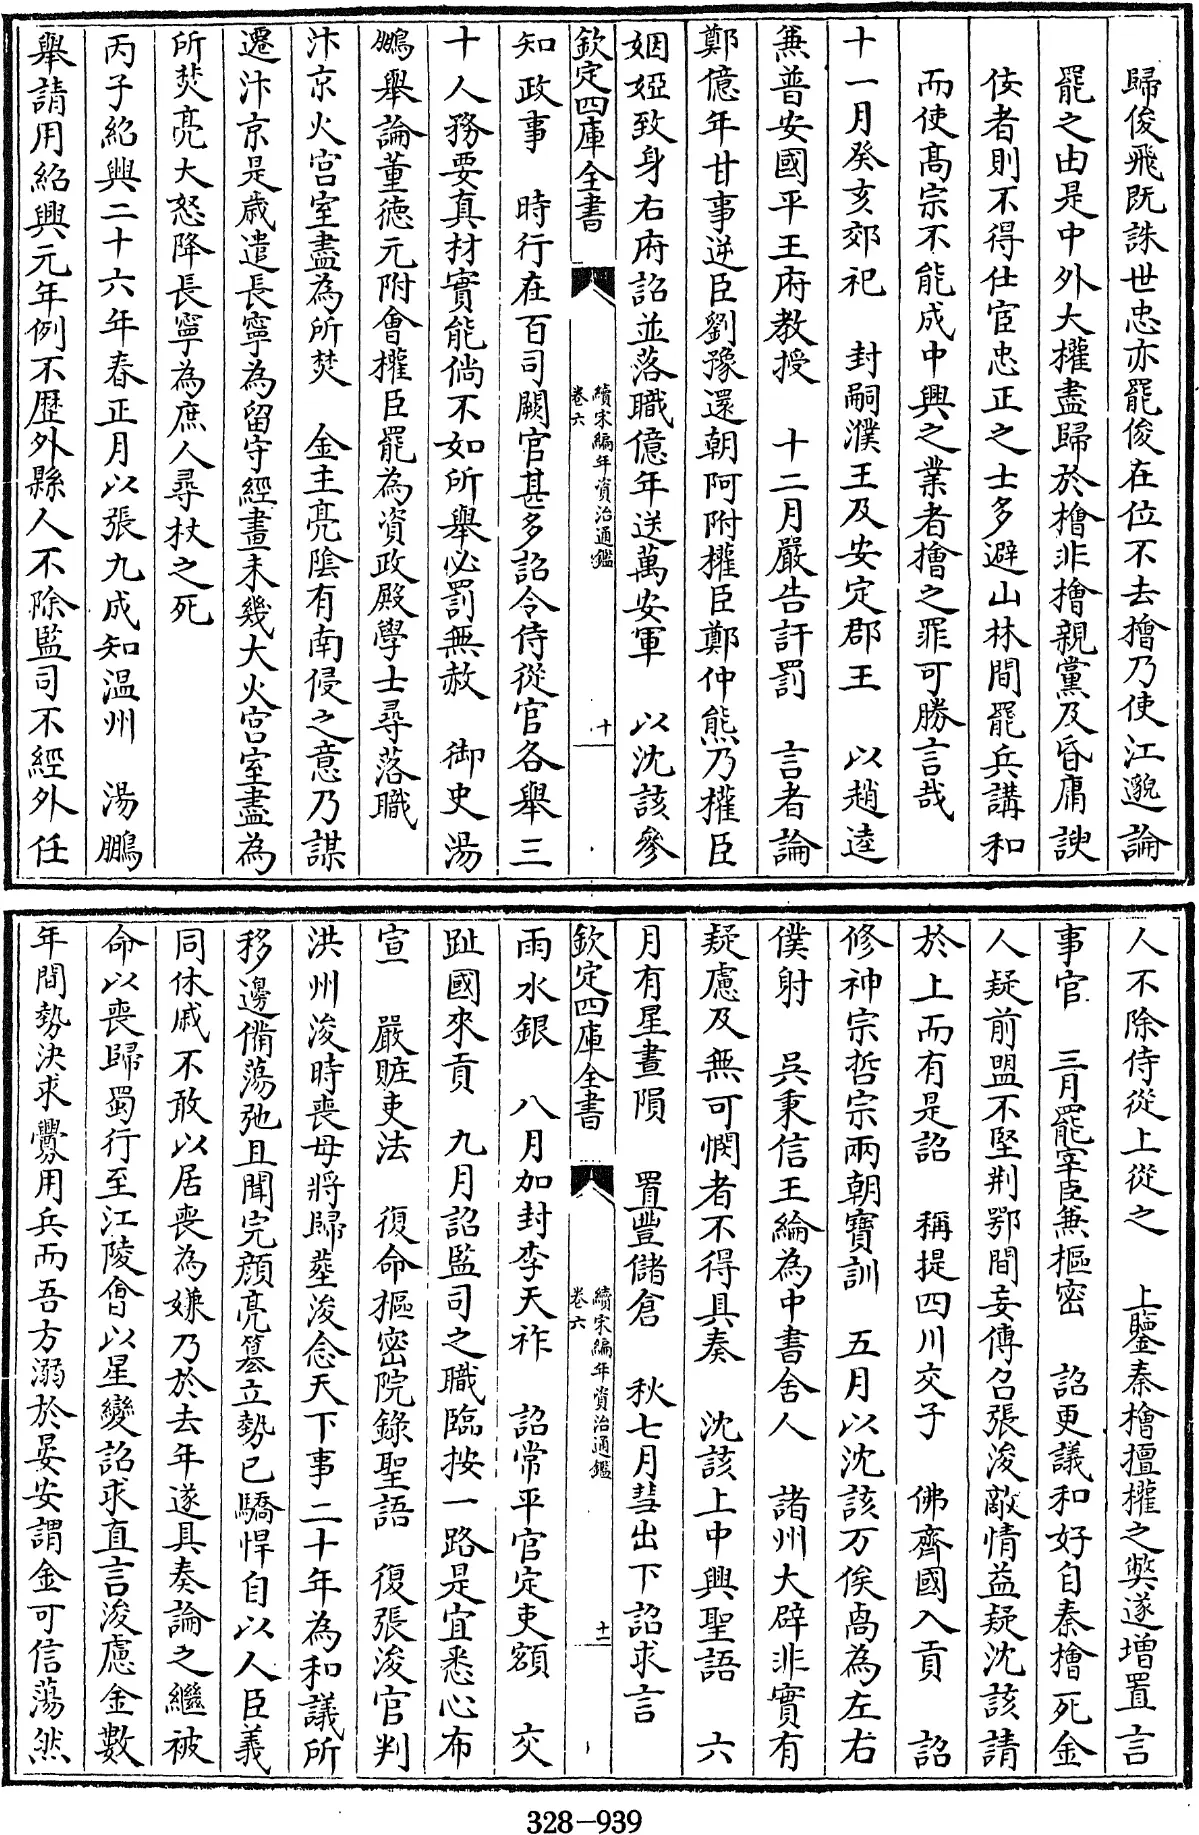 歸俊飛既誅世忠亦罷俊在位不去擋乃使江邈論
罷之由是中外大權盡歸於檜非檜親黨及昏庸諛
佞者則不得仕宦忠正之士多避山林間罷兵講和
而使髙宗不能成中興之業者檜之罪可勝言哉
十一月癸亥郊祀　封嗣濮王及安定郡王　以趙逵
兼普安國平王府教授　十二月嚴告訐罰　言者論
鄭億年甘事逆臣劉豫還朝阿附權臣鄭仲熊乃權臣
姻婭致身右府詔並落職億年送萬安軍　以沈該參
欽定四庫全書
續宋編年資治通鑑
卷六
十
知政事　時行在百司闕官甚多詔令侍從官各舉三
十人務要真材實能倘不如所舉必罰無赦　御史湯
鵬舉論董德元附會權臣罷為資政殿學士尋落職
汴京火宫室盡為所焚　金主亮陰有南侵之意乃謀
遷汴京是歳遣長寧為留守經畫未幾大火宫室盡為
所焚亮大怒降長寧為庶人尋杖之死
丙子紹興二十六年春正月以張九成知温州　湯鵬
舉請用紹興元年例不歴外縣人不除監司不經外任
人不除侍從上從之　上鑒秦檜擅權之弊遂增置言
事官　三月罷宰臣兼樞密　詔更議和好自秦檜死金
人疑前盟不堅荆鄂間妄傳召張浚敵情益疑沈該請
於上而有是詔　稱提四川交子　佛齊國入貢　詔
修神宗哲宗兩朝寶訓　五月以沈該万俟卨為左右
僕射　吳秉信王綸為中書舍人　諸州大辟非實有
疑慮及無可憫者不得具奏　沈該上中興聖語　六
月有星晝隕　置豐儲倉　秋七月彗出下詔求言
欽定四庫全書
續宋編年資治通鑑
卷六
十一
雨水銀　八月加封李天祚　詔常平官定吏額　交
趾國來貢　九月詔監司之職臨按一路是宜悉心布
宣　嚴贓吏法　復命樞密院錄聖語　復張浚官判
洪州浚時喪母將歸塟浚念天下事二十年為和議所
移邊備蕩弛且聞完顔亮簒立勢已驕悍自以人臣義
同休戚不敢以居喪為嫌乃於去年遂具奏論之繼被
命以喪歸蜀行至江陵會以星變詔求直言浚慮金數
年間勢決求釁用兵而吾方溺於晏安謂金可信蕩然
328-939